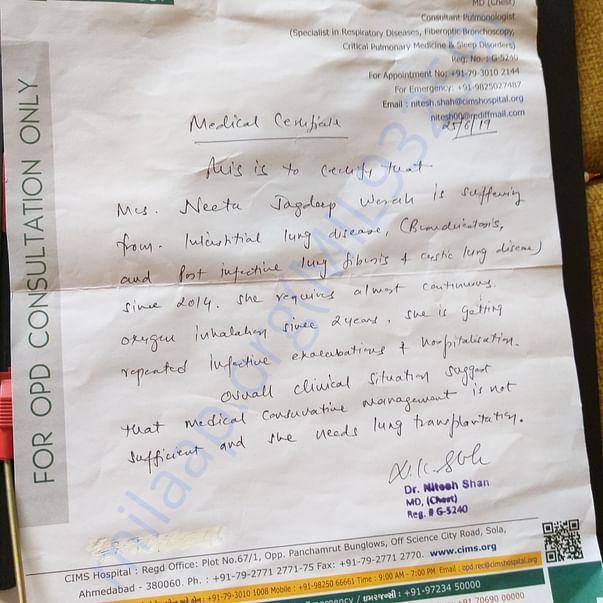 MD (Chest)
Consultant Pulmonologist
(Specialist in Respiratory Diseases, Fiberoptic Bronchoscopy,
Critical Pulmonary Medicine & Sleep Disorders)
Reg. No.: G-5240
For Appointment No: +91-79-3010 2144
For Emergency: +91-9825027487
Email : nitesh.shah@cimshospital.org
nitesh00@rediffmail.com
25/6/19
Medical Certificate
This is to certify that
Mrs. Neeta Jagdeep is suffering
from. Interstitial lung disease, (Bronchiectasis,
and Post infective lung fibrosis + cystic lung disease)
since 2014. she requires almost continuous
oxygen inhalation since 2 years. she is getting
repeated infective exacerbations + hospitalisation.
overall clinical situation suggest
that medical conservative management is not
sufficient and she needs lung transplantation.
Dr. Nitesh Shah
MD, (Chest)
Reg. # G-5240
FOR OPD CONSULTATION ONLY
milaap.org
CIMS Hospital : Regd Office: Plot No.67/1, Opp. Panchamrut Bunglows, Off Science City Road, Sola,
Ahmedabad - 380060. Ph. : +91-79-2771 2771-75 Fax: +91-79-2771 2770. www.cims.org
+91-79-3010 1008 Mobile : +91-98250 66661 Time : 9:00 AM - 7:00 PM Email : opd.rec@cimshospital.org
+91-97234 50000
70690 00000